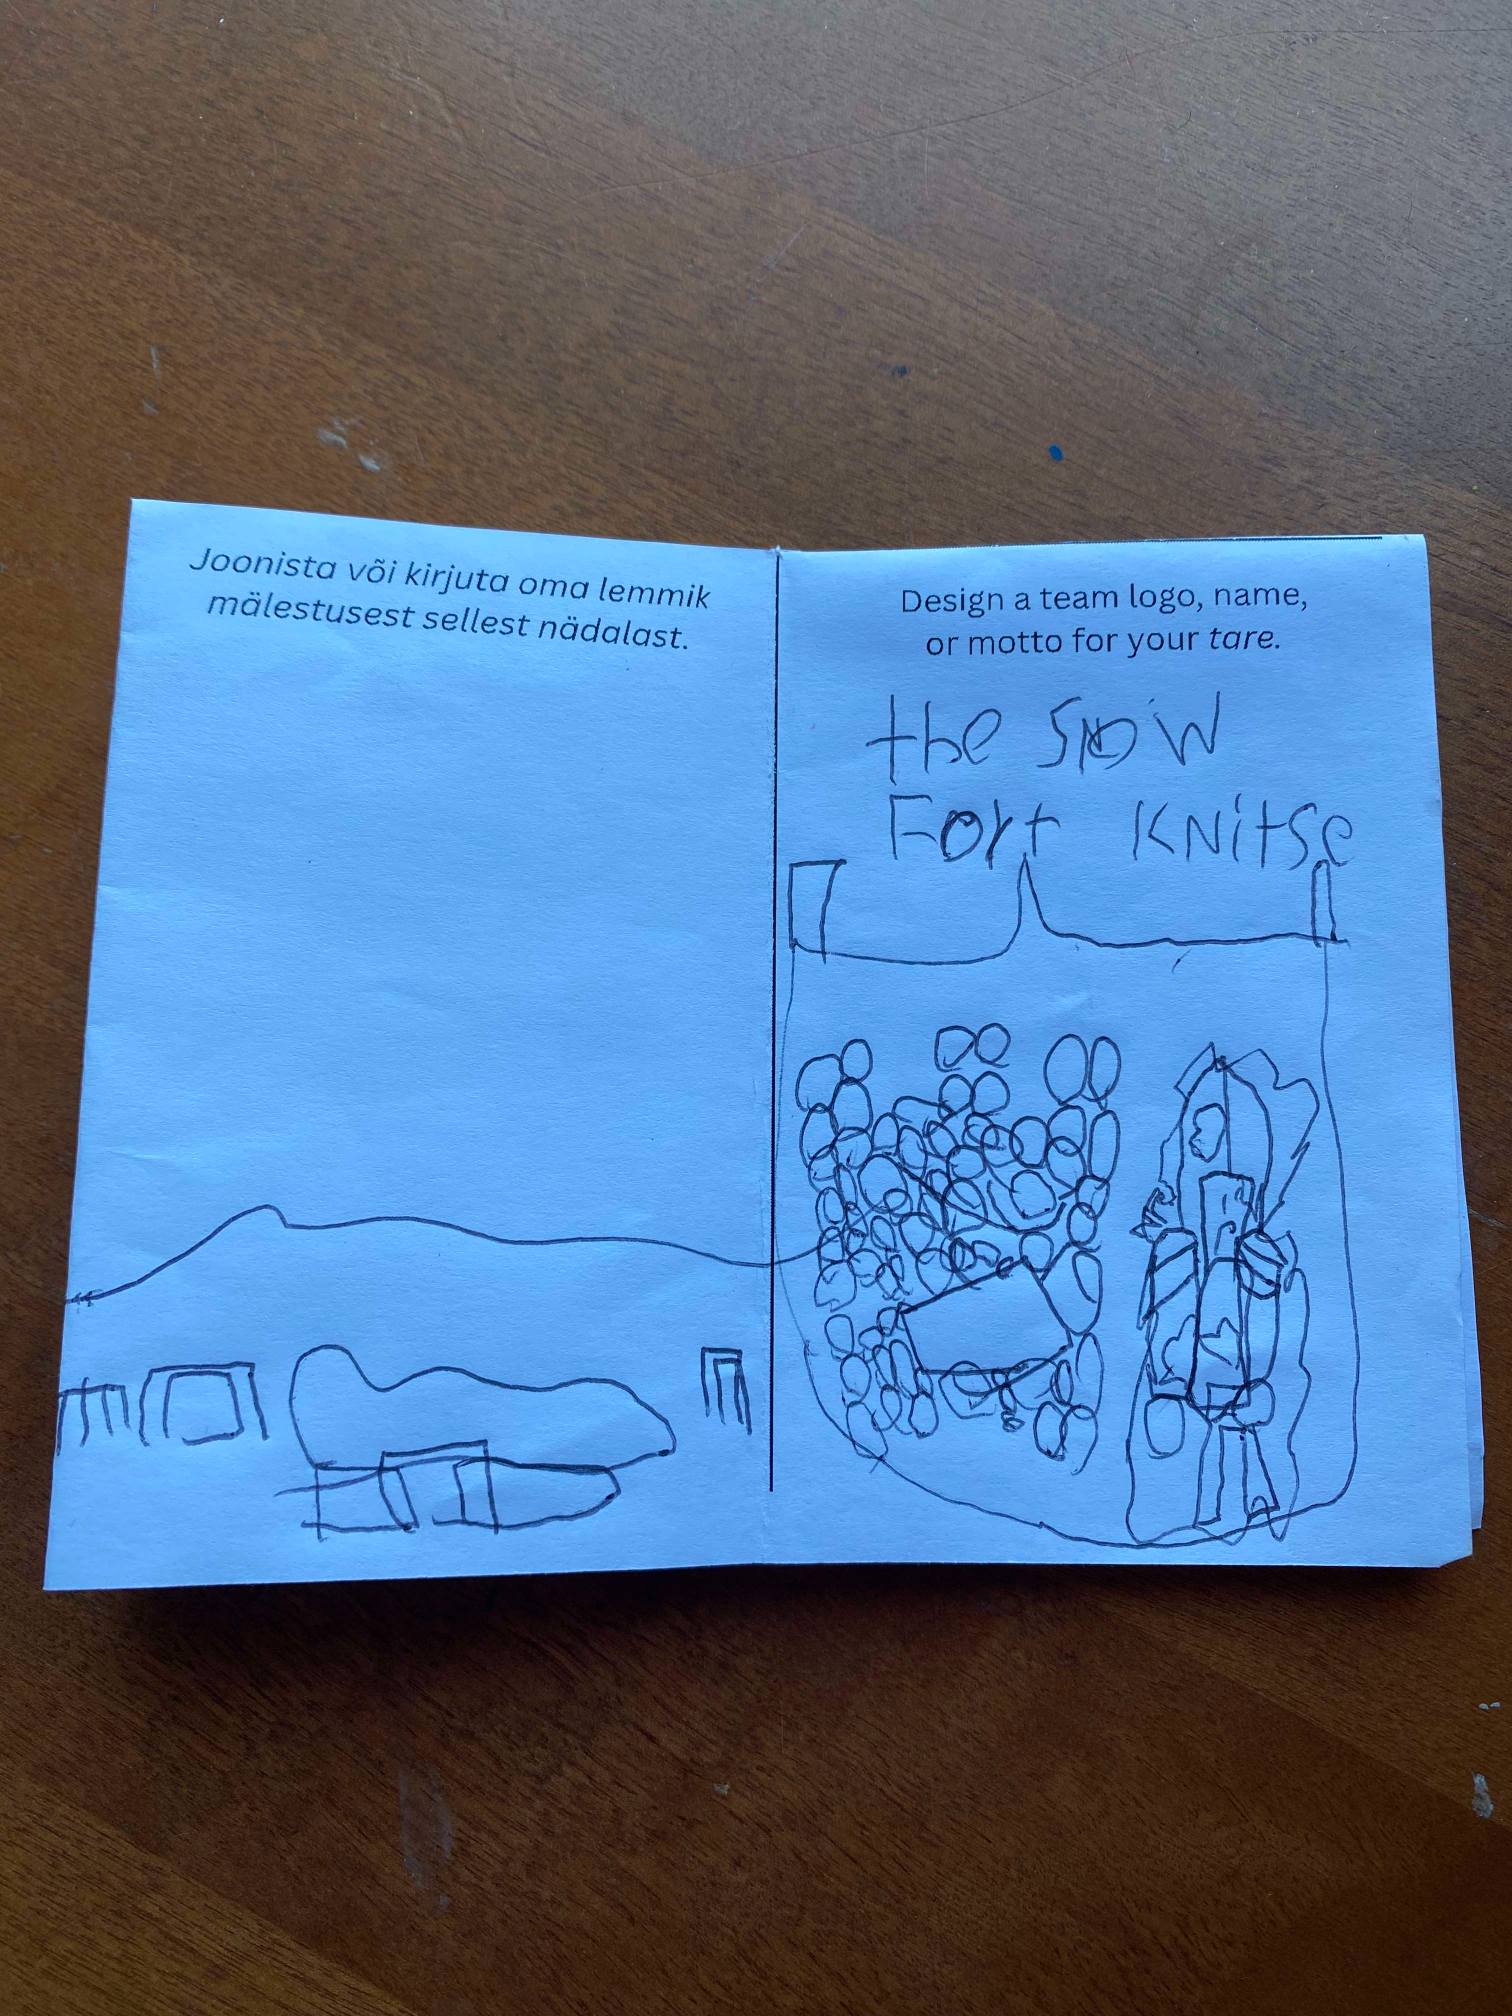 Joonista või kirjuta oma lemmik
mälestusest sellest nädalast.
Design a team logo, name,
or motto for your tare.
the snow
Fort Knitse